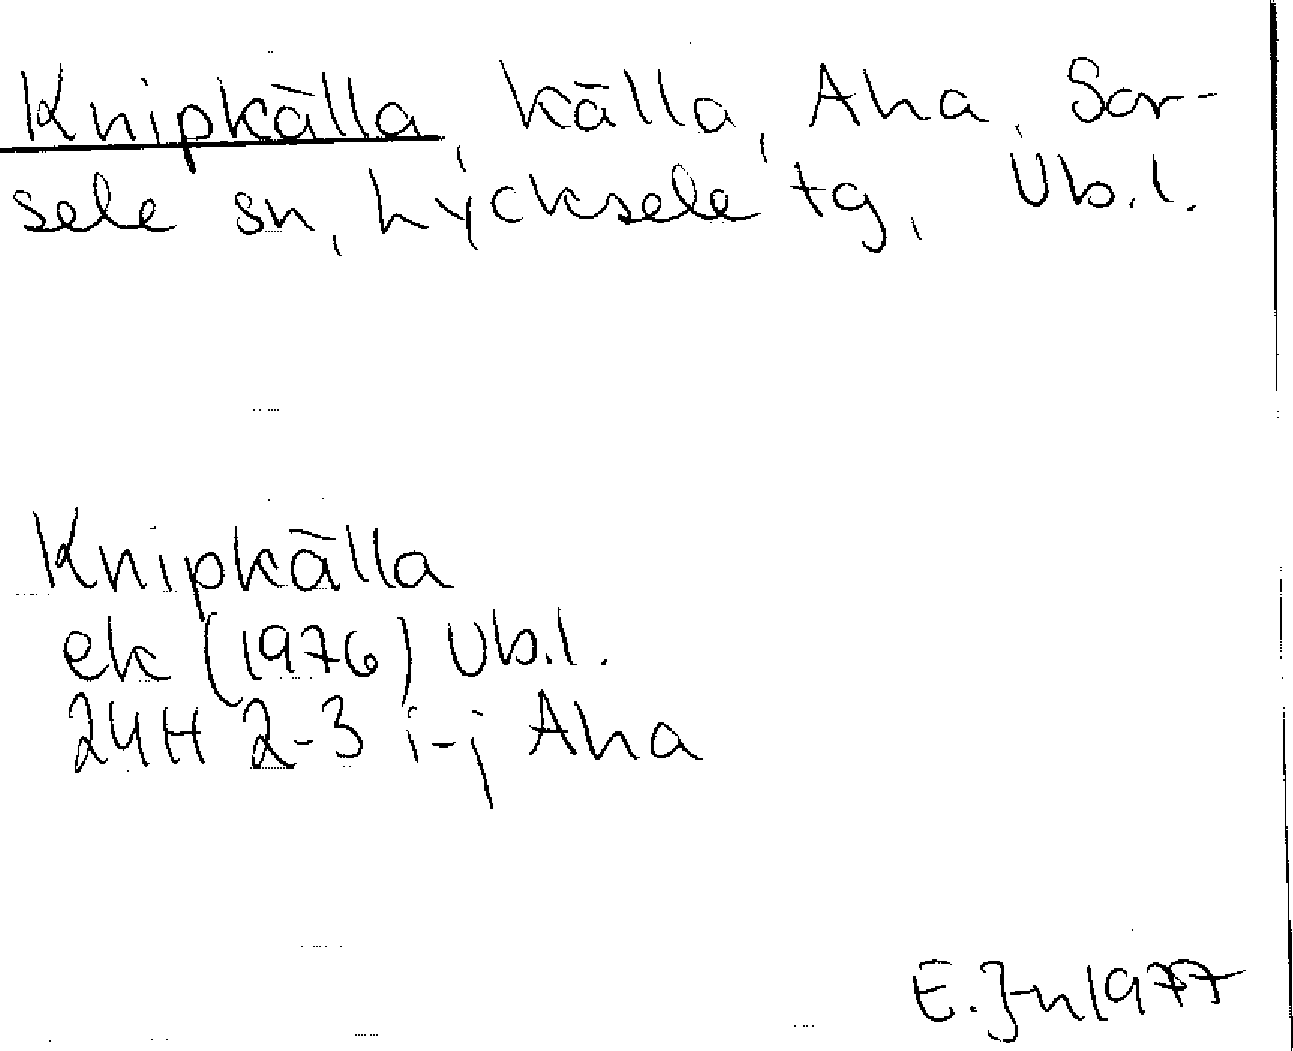 Knipkälla, källa, Aha, Sor-
sele sn, Lycksele tg, Vb.l.
Knipkälla
ek (1976) Vb.l.
24H 2-3 i-j Aha
E. J-n 1977